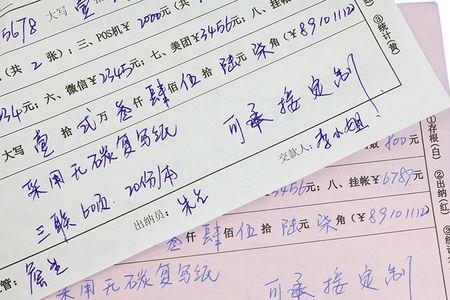 5678 大写 壹
(共 2 张); 三、POS机¥2000元; (共
234元; 六、微信¥2345元; 七、美团¥3456元; 八、挂帐
大写 壹 拾 贰 万 叁 仟 肆 佰 伍 拾 陆 元 柒 角 (¥89101112)
采用无碳复写纸 可承接定制
三联60页. 20份/本
出纳员: 朱生 交款人: 李小姐!
管:
③统计(黄)
800元
3456元; 八、挂帐¥6789元
叁 仟 肆 佰 伍 拾 陆 元 柒 角 (¥89101112)
采用无碳复写纸 可承接定制
①存根(白) ②出纳(红) ③统计